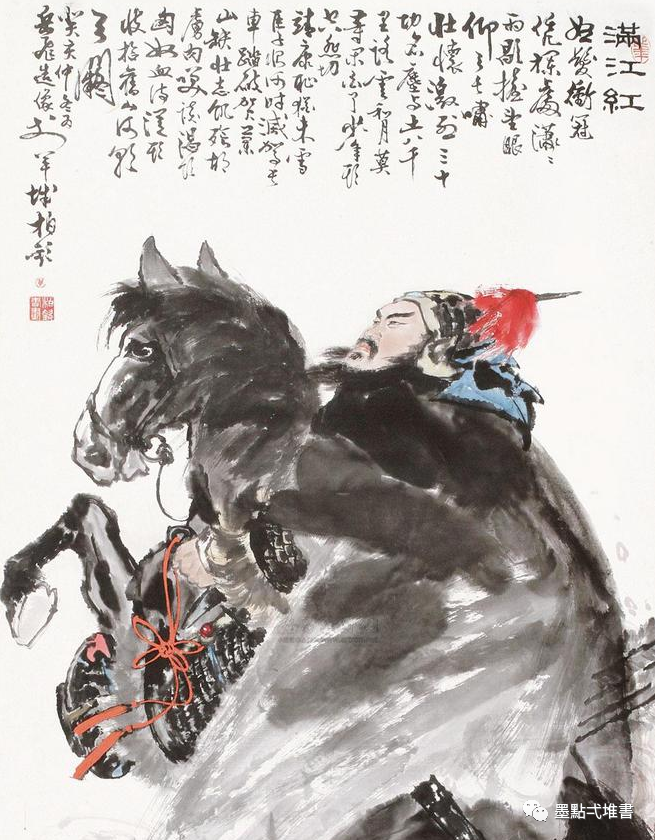 滿江紅
怒髮衝冠
凭欄處瀟〻
雨歇抬望眼
仰天長嘯
壯懷激烈三十
功名塵與土八千
里路雲和月莫
等閑白了少年頭
空悲切
靖康恥猶未雪
臣子恨何時滅駕長
車踏破賀蘭
山缺壯志飢餐胡
虜肉笑談渴飲
匈奴血待從頭
收拾舊山河朝
天闕
癸亥仲冬寫
岳飛造像于
羊城柏
墨點弍堆書